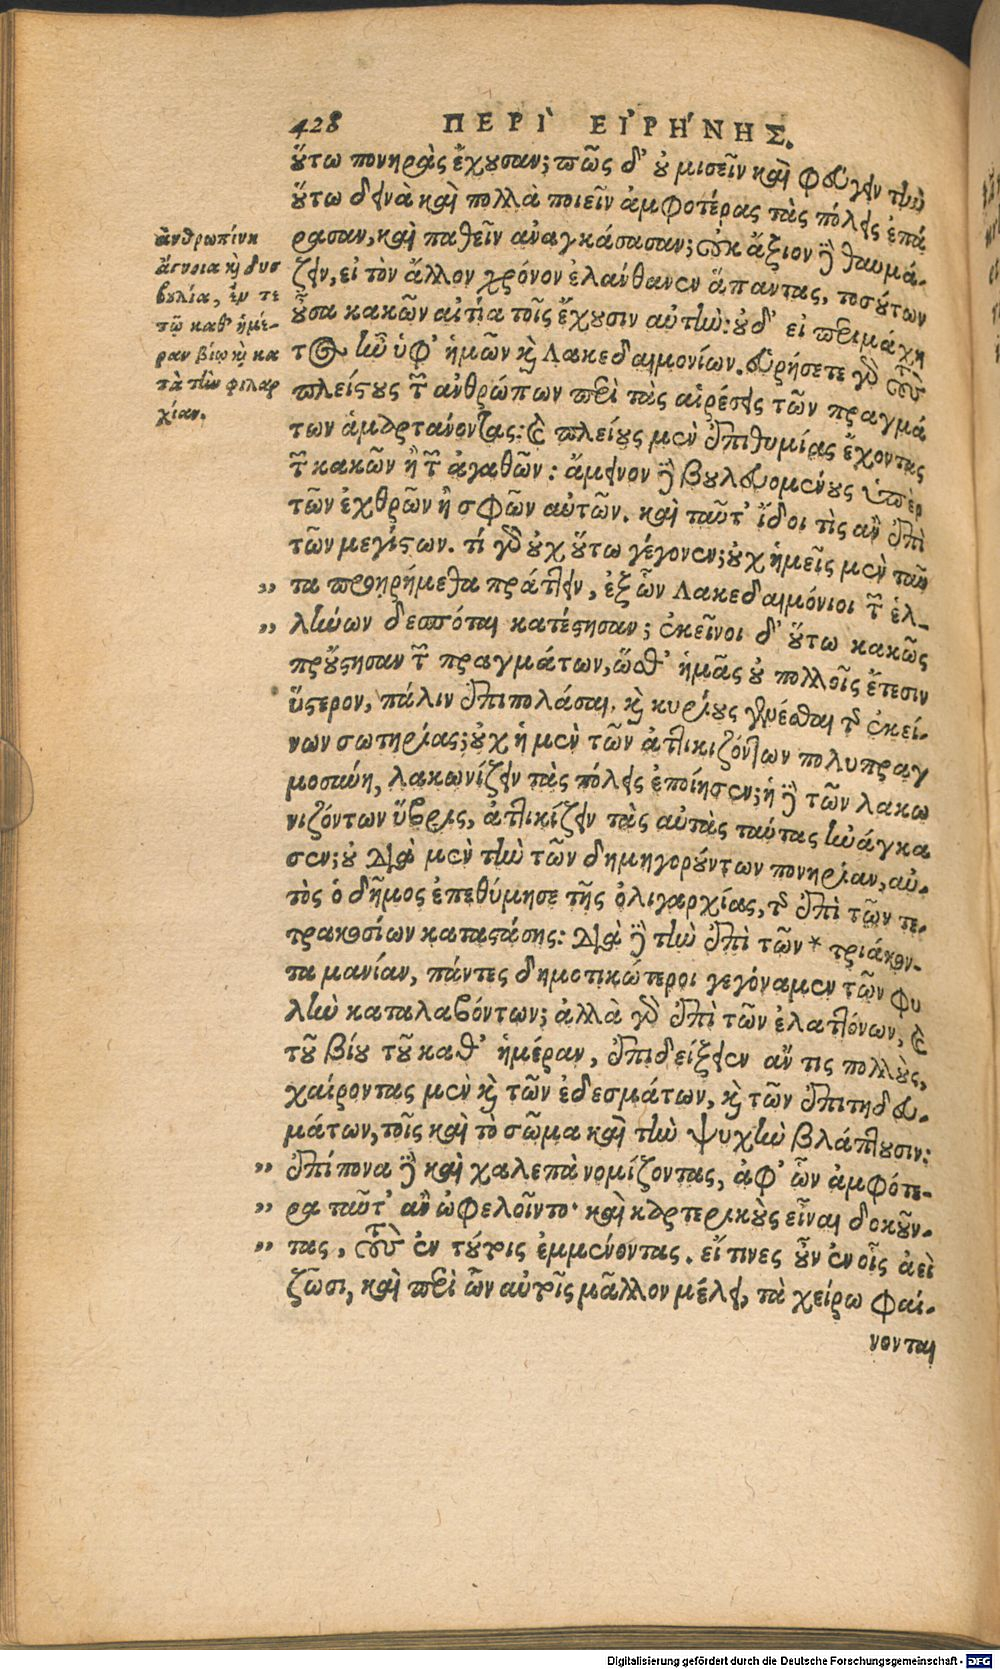 428 ΠΕΡῚ ΕἸΡΉΝΗΣ.
ὕτω πονηρὰς ἔχουσαν; πῶς δ' οὐ μισεῖν καὶ φεύγειν τὴν
οὕτω δεινὰ καὶ πολλὰ ποιεῖν ἀμφοτέρας τὰς πόλεις ἐπά
ρασαν, καὶ παθεῖν ἀναγκάσασαν; οὐκ ἄξιον δὲ θαυμά-
ζειν, εἰ τὸν ἄλλον χρόνον ἐλάνθανεν ἅπαντας, τοσούτων
οὖσα κακῶν αἰτία τοῖς ἔχουσιν αὐτὴν: οὐδ' εἰ περιμάχη
τος ἦν ὑφ' ἡμῶν καὶ Λακεδαιμονίων. εὑρήσετε γὰρ τοὺς
πλείστους τῶν ἀνθρώπων περὶ τὰς αἱρέσεις τῶν πραγμά
των ἁμαρτάνοντας: καὶ πλείους μὲν ἐπιθυμίας ἔχοντας
τῶν κακῶν ἢ τῶν ἀγαθῶν: ἄμεινον δὲ βουλευομένους ὑπὲρ
τῶν ἐχθρῶν ἢ σφῶν αὐτῶν. καὶ ταῦτ' ἴδοι τὶς ἂν ἐπὶ
τῶν μεγίστων. τί γὰρ οὐχ οὕτω γέγονεν; οὐχ ἡμεῖς μὲν ταῦ
" τα προῃρήμεθα πράττειν, ἐξ ὧν Λακεδαιμόνιοι τῶν ἑλ-
" λήνων δεσπόται κατέστησαν; ἐκεῖνοι δ' οὕτω κακῶς
προὔστησαν τῶν πραγμάτων, ὥσθ' ἡμᾶς οὐ πολλοῖς ἔτεσιν
ὕστερον, πάλιν ἐπιπολάσαι, καὶ κυρίους γενέσθαι τῆς ἐκεί-
νων σωτηρίας; οὐχ ἡ μὲν τῶν ἀττικιζόντων πολυπραγ
μοσύνη, λακωνίζειν τὰς πόλεις ἐποίησεν; ἡ δὲ τῶν λακω
νιζόντων ὕβρις, ἀττικίζειν τὰς αὐτὰς ταύτας ἠνάγκα
σεν; οὐ διὰ μὲν τὴν τῶν δημηγορούντων πονηρίαν, αὐ-
τὸς ὁ δῆμος ἐπεθύμησε τῆς ὀλιγαρχίας, τῆς ἐπὶ τῶν τε-
τρακοσίων καταστάσης: διὰ δὲ τὴν ἐπὶ τῶν * τριάκον-
τα μανίαν, πάντες δημοτικώτεροι γεγόναμεν τῶν φυ
λὴν καταλαβόντων; ἀλλὰ γὰρ ἐπὶ τῶν ἐλαττόνων, καὶ
τοῦ βίου τοῦ καθ' ἡμέραν, ἐπιδείξειεν ἄν τις πολλοὺς,
χαίροντας μὲν καὶ τῶν ἐδεσμάτων, καὶ τῶν ἐπιτηδευ-
μάτων, τοῖς καὶ τὸ σῶμα καὶ τὴν ψυχὴν βλάπτουσιν:
" ἐπίπονα δὲ καὶ χαλεπὰ νομίζοντας, ἀφ' ὧν ἀμφότε-
" ρα ταῦτ' ἂν ὠφελοῖντο· καὶ καρτερικοὺς εἶναι δοκοῦν-
" τας, τοὺς ἐν τούτοις ἐμμένοντας. εἴ τινες οὖν ἐν οἷς ἀεὶ
ζῶσι, καὶ περὶ ὧν αὐτοῖς μᾶλλον μέλει, τὰ χείρω φαί-
νονται
ἀνθρωπίνη
ἄγνοια καὶ δυσ
βουλία, ἔν τε
τῷ καθ' ἡμέ-
ραν βίῳ καὶ κα
τὰ τὴν φιλαρ
χίαν.
Digitalisierung gefördert durch die Deutsche Forschungsgemeinschaft - DFG